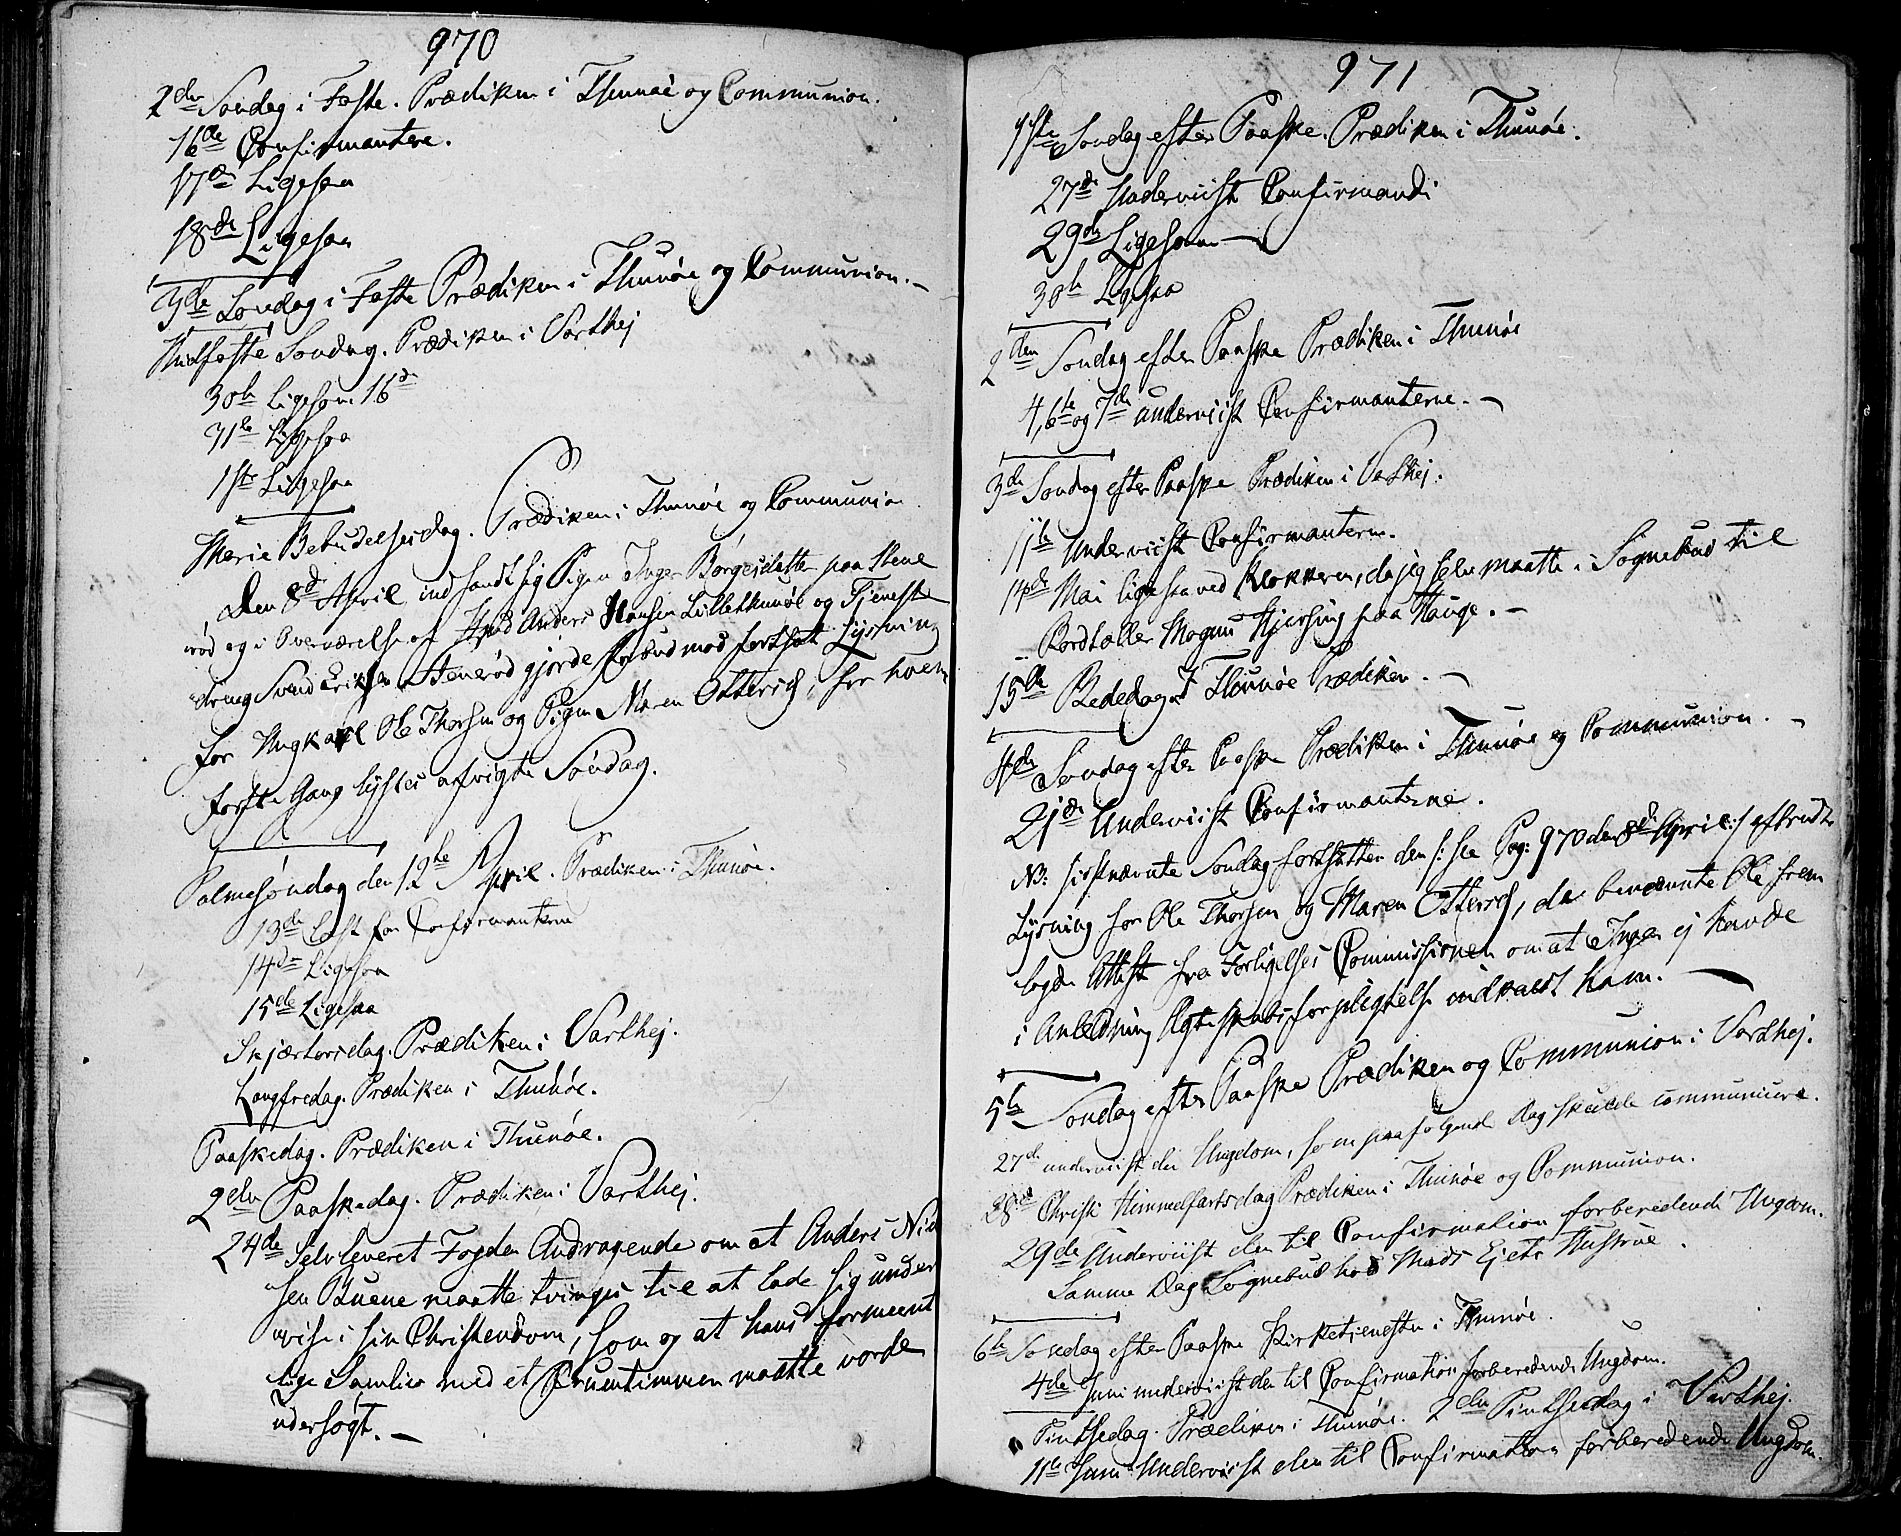 970
2den Søndag i Faste. Prædiken i Thunøe og Communion.
16de Confirmantere.
17de Ligesaa
18de Ligesaa
3die Søndag i Faste Prædiken i Thunøe og Communion.
Midfaste Søndag. Prædiken i Varthej
30te Ligesom 16de
31te Ligesaa
1ste Ligesaa
Mariæ Bebudelsesdag. Prædiken i Thunøe og Communion
Den 8de April indfandt sig Pigen Inger Børgesdatter paa Stene
rød og i Overværelse af Anders Hansen Lillethunøe og Tjeneste
dreng Svend Erichsen Stenerød gjorde Forbud mod fortsat Lysning
for Ungkarl Ole Thorsen og Pigen Maren Ottersd, for hvem
første Gang lystes afvigte Søndag.
Palmesøndag den 12te April. Prædiken i Thunøe.
13de Læst for Confirmanterne
14de Ligesaa
15de Ligesaa
Skjærtorsdag. Prædiken i Varthej.
Langfredag. Prædiken i Thunøe.
Paaskedag. Prædiken i Thunøe.
2den Paaskedag. Prædiken i Varthej.
24de Selv leveret Fogden Andragende om at Anders Niel
sen Buene maatte tvinges til at lade sig under
vise i sin Christendom, som og at hans formeent
lige Samliv med et Fruentimmer maatte vorde
undersøgt.
971
1ste Søndag efter Paaske. Prædiken i Thunøe.
27de Underviist Confirmandi
29de Ligesaa
30te Ligesaa
2den Søndag efter Paaske Prædiken i Thunøe
4, 6te og 7de underviist Confirmanterne.
3de Søndag efter Paaske Prædiken i Varthej.
11te Underviist Confirmanterne.
14de Mai ligesaa ved Klokkeren, da jeg selv maatte i Sognebud til
Mogens Hjersing paa Hauge.
15de Bededag I Thunøe Prædiken.
4de Søndag efter Paaske Prædiken i Thunøe og Communion.
21de Underviist Confirmanterne.
NB: sistnævnte Søndag fortsattes den /: see Pag: 970 den 8de April :/ afbrudte
Lysning for Ole Thorsen og Maren Ottersd, da benævnte Ole frem
lagde Attest fra Forligelses Commissionen om at Inger ej havde
i Anledning Ægteskabsforpligtelse indkaldt ham.
5te Søndag efter Paaske Prædiken og Communion i Varthej.
27de underviist den Ungdom, som paafølgende Dag skulde communicere.
28de Christi Himmelfartsdag Prædiken i Thunøe og Communion.
29de Underviist den til Confirmation forberedende Ungdom.
Samme Dag Sognebud hos Mads Ejers Hustrue.
6te Søndag efter Paaske Kirketienesten i Thunøe.
4de Juni underviist den til Confirmation forberedende Ungdom.
Pintsedag. Prædiken i Thunøe. 2den Pintsedag i Varthej.
11te Juni Underviist den til Confirmation forberedende Ungdom.